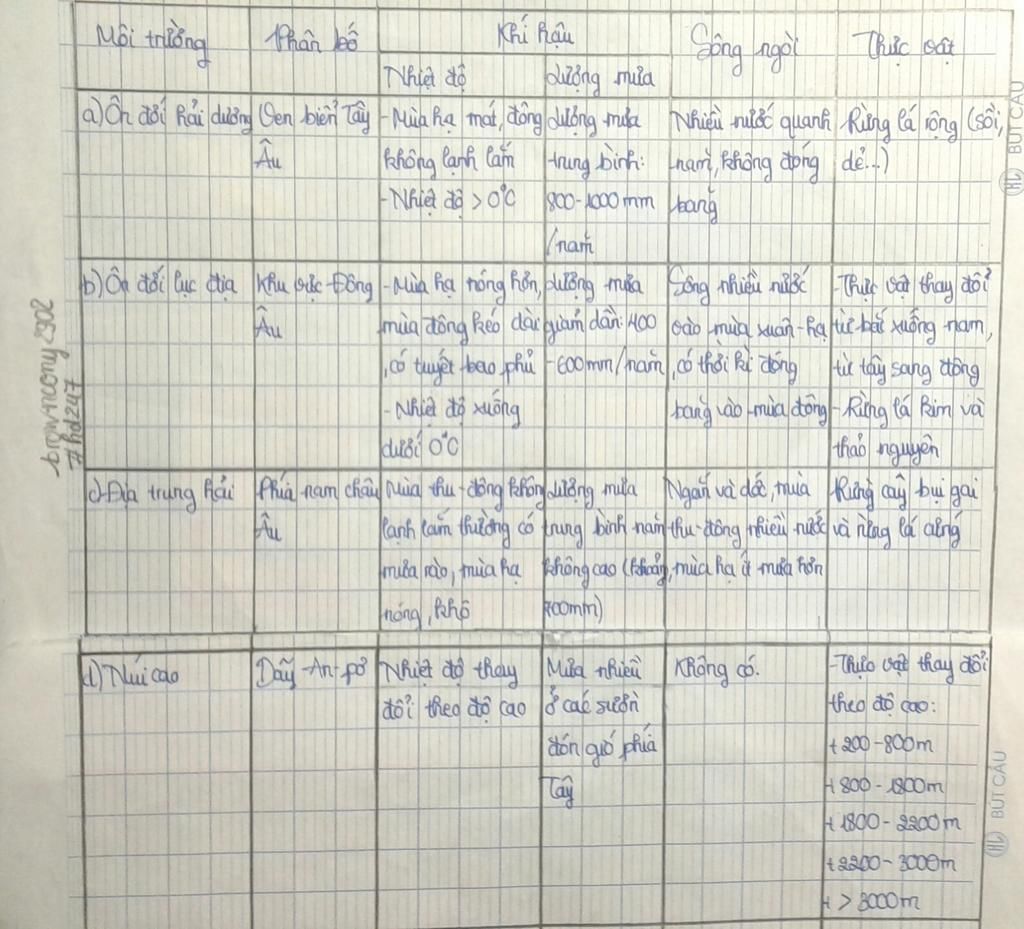 Môi trường
Phân bố
Khí hậu
Sông ngòi
Thực vật
Nhiệt độ
Lượng mưa
a) Ôn đới hải dương
Ven biển Tây
Âu
- Mùa hạ mát, đông
không lạnh lắm
- Nhiệt độ > 0°C
Lượng mưa
trung bình:
800-1000mm
/năm
Nhiều nước quanh
năm, không đóng
băng
Rừng lá rộng (sồi,
dẻ...)
b) Ôn đới lục địa
Khu vực Đông
Âu
- Mùa hạ nóng hơn,
mùa đông kéo dài
, có tuyết bao phủ
- Nhiệt độ xuống
dưới 0°C
Lượng mưa
giảm dần: 400
-600mm/năm
Sông nhiều nước
vào mùa xuân-hạ
, có thời kì đóng
băng vào mùa đông
- Thực vật thay đổi
từ bắc xuống nam,
từ tây sang đông
- Rừng lá kim và
thảo nguyên
c) Địa trung hải
Phía nam châu
Âu
Mùa thu-đông không
lạnh lắm thường có
mưa rào, mùa hạ
nóng, khô
Lượng mưa
trung bình năm
không cao (khoảng
700mm)
Ngắn và dốc, mùa
thu-đông nhiều nước
, mùa hạ ít mưa hơn
Rừng cây bụi gai
và rừng lá cứng
d) Núi cao
Dãy An-pơ
Nhiệt độ thay
đổi theo độ cao
Mưa nhiều
ở các sườn
đón gió phía
Tây
Không có.
- Thực vật thay đổi
theo độ cao:
+ 200-800m
+ 800-1800m
+ 1800-2200m
+ 2200-3000m
+ > 3000m
browncony2302
#hd247
HL BÚT CẦU
HL BÚT CẦU